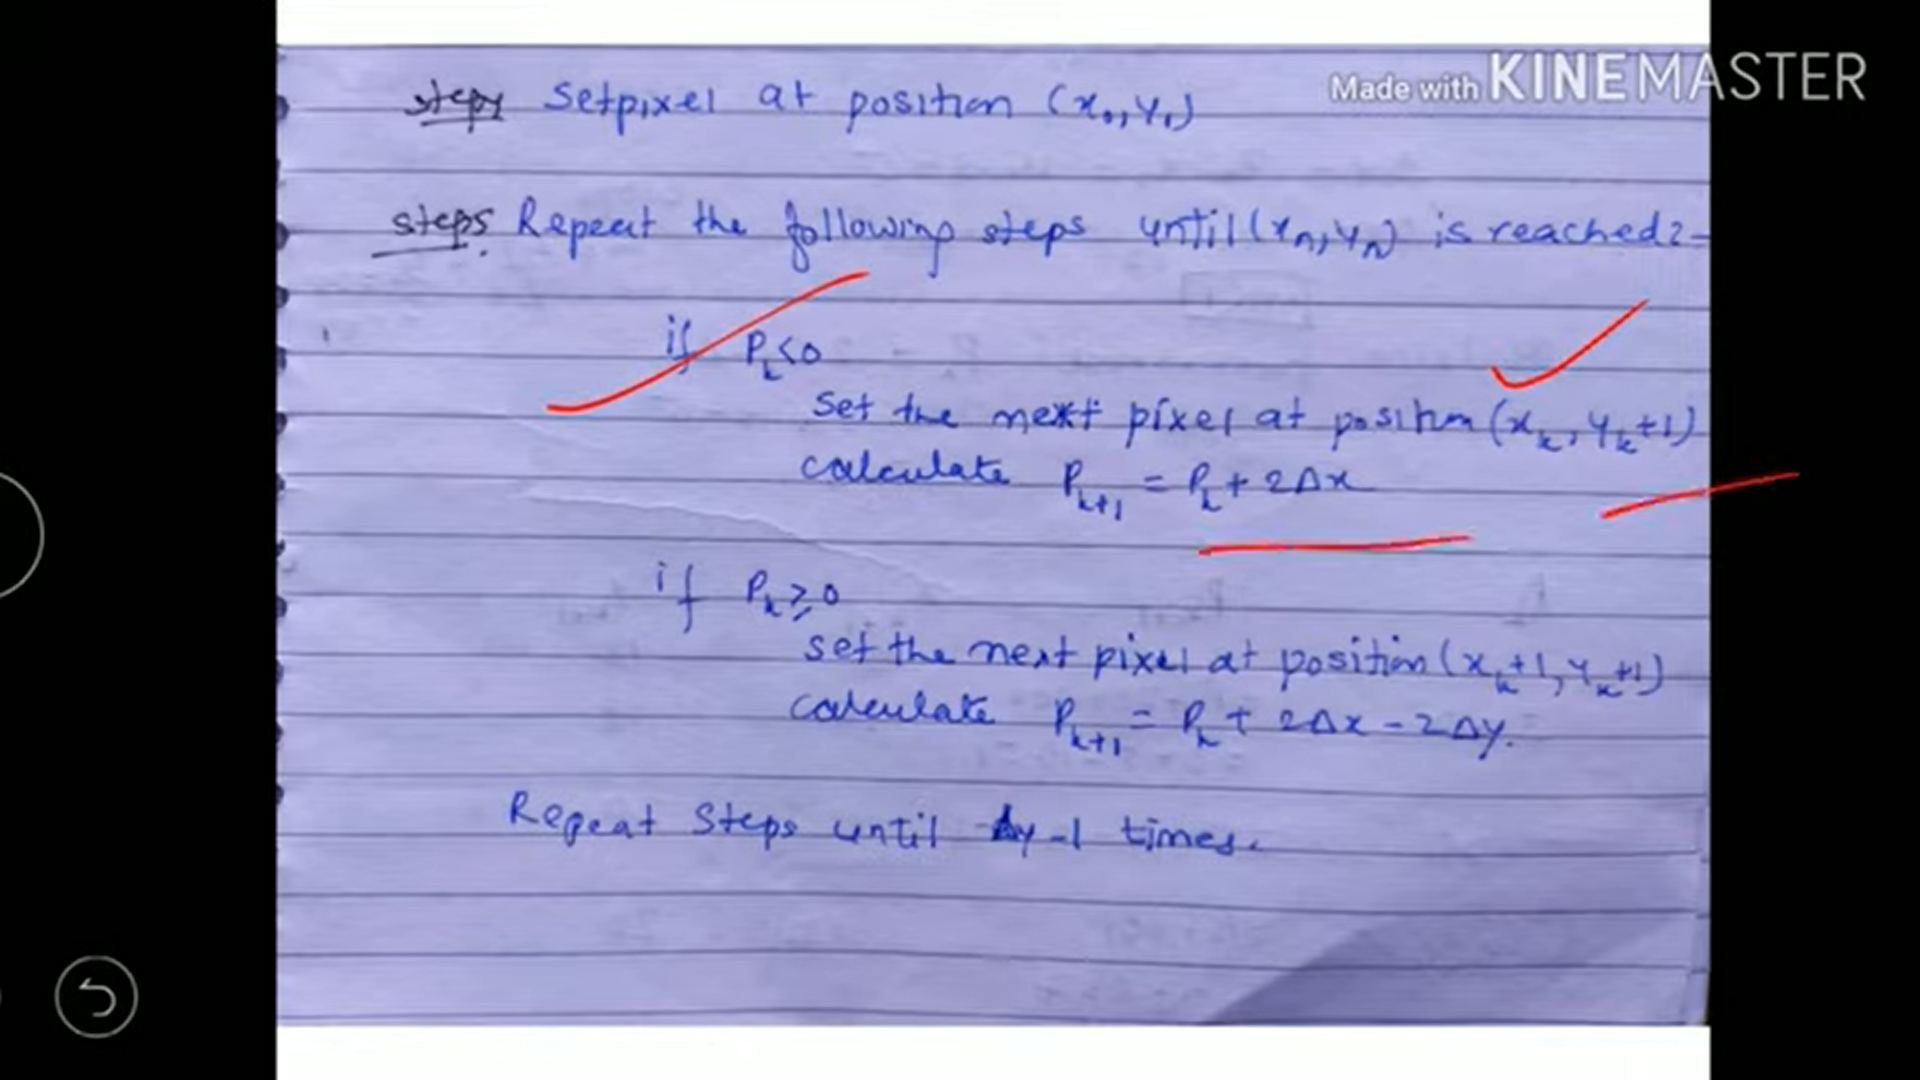 Made with KINEMASTER
step4 Setpixel at position (x₀, y₁)
step5. Repeat the following steps until (xₙ, yₙ) is reached:-
if Pₖ<0
Set the next pixel at position (xₖ, yₖ+1)
calculate Pₖ₊₁ = Pₖ + 2Δx
if Pₖ ≥ 0
set the next pixel at position (xₖ+1, yₖ+1)
calculate Pₖ₊₁ = Pₖ + 2Δx - 2Δy.
Repeat Steps until Δy-1 times.